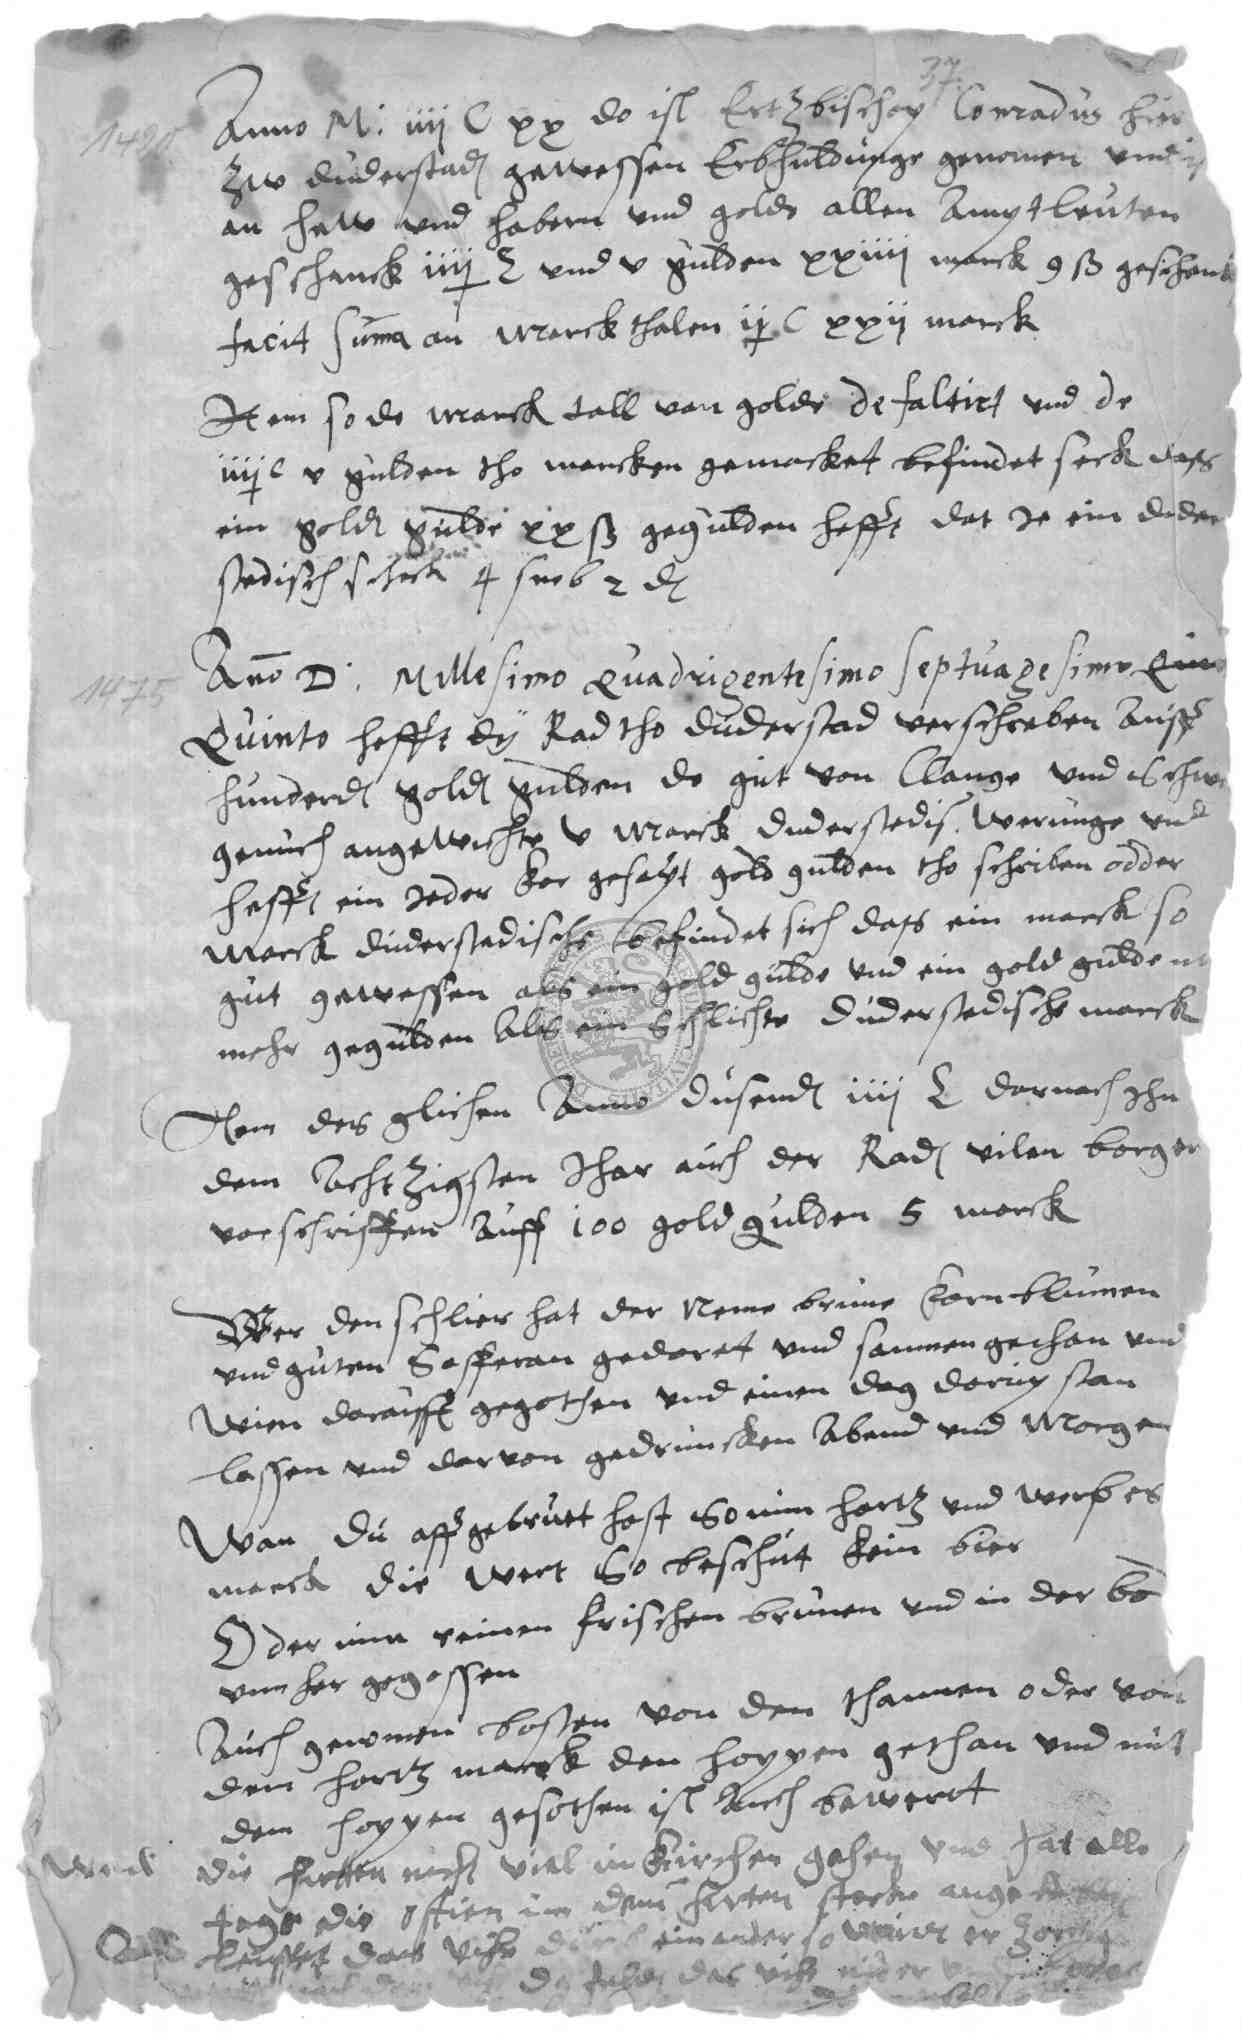 37
1420
Anno M. iiij C xx do ist Ertzbischop Conradus hier
zw duderstadt gewessen Erbhuldunge genomen vnd
an haw vnd habern vnd golde allen Ampt leuten
geschanck iiij C vnd v gulden xxiiij marck 9 ß geschan
facit suma an marck thalen ij C xxij marck
Item so de marck tall van golde defaltirt vnd de
iiij C v gulden tho marcken gemacket befindet seck dass
ein gold gulde xx ß gegulden hefft dat Je ein duder
stedisch schock 4 sneb 2 d
1475
Ano D. Millesimo Quadrigentesimo septuagesimo
Quinto hefft dy Rad tho duderstad verschreben Auff
hunderd gold gulden de gut von Clange vnd Schwer
genuch angewichte v Marck duderstedis. Werunge vnd
hefft ein Jeder kor gehapt gold gulden tho schriben odder
Marck duderstedische befindet sich dass ein marck so
gut gewessen als ein gold gulde vnd ein gold gulde ni
mehr gegulden Als ein Schlichte duderstedische marck
Item des glichen Anno dusend iiij C darnach Jhn
dem Achtzigsten Jhar auch der Rad vilen borger
vorschriffen Auff 100 gold gulden 5 marck
Wer den schlier hat der Neme brune Korn blumen
vnd guten Safferan gedoret vnd sammen gethan vnd
Wien darauff gegothen vnd einen dag darin stan
lassen vnd darvon gedruncken Abend vnd Morgen
Wan du affgebruet hast So nim hartz vnd werp es
marck die wert So beschut kein bier
Oder nim reinen frischen brunen vnd in der bo
vmher gegossen
Auch genomen bosten von den thannen oder von
dem hartz marck den hoppen gethan vnd mit
dem hoppen gesothen ist Auch bewert
die hirten nicht viel in kirchen gehen vnd hat alle
tage die in dem hirten
leufft das vihe ein ander so wirt er
das vihe